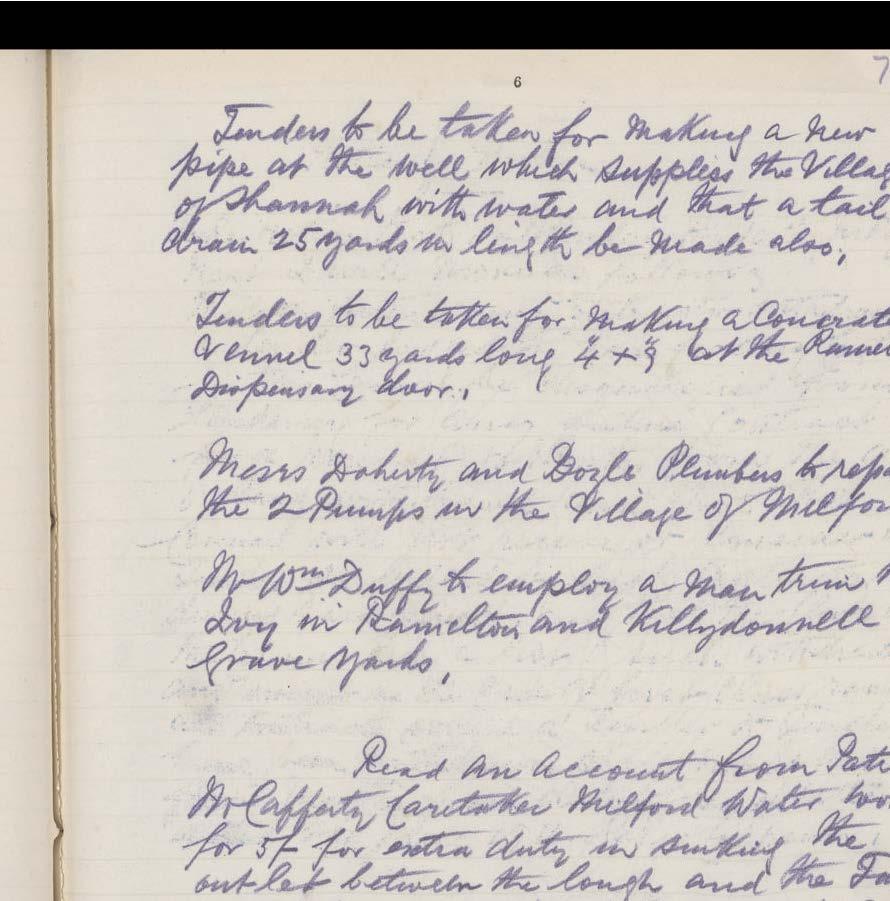 6
7
Tenders to be taken for making a new
pipe at the well which suppless the Villag
of Shannah with water and that a tail
drain 25 yards in length be made also,
Tenders to be taken for making a Concrat
Vennel 33 yards long at the Ramel
Dispensary door.
Mesrs Doherty and Boyle Plumbers to repa
the 2 Pumps in the Village of Milfor
Mr Wm Duffy to employ a man trim
Ivy in Ramelton and Killydonnell
Grave Yards,
Read an account from Pat
McCafferty Caretaker Milford Water wo
for 5/- for extra duty in sinking the
outlet between the lough and the